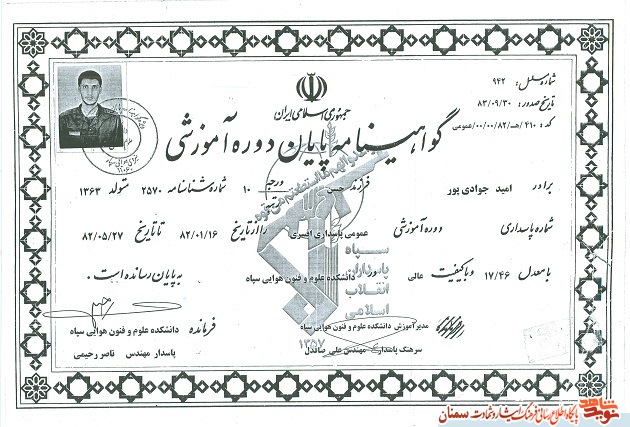 شماره مسلسل: ۹۴۲
تاریخ صدور: ۸۳/۰۹/۳۰
کد: ۴۱۰/هـ/۰۰/۰۰/۸۲/عمومی
جمهوری اسلامی ایران
گواهینامه پایان دوره آموزشی
برادر امید جوادی پور فرزند حسن ورتبه درجه ۱۰ شماره شناسنامه ۲۵۷۰ متولد ۱۳۶۳
شماره پاسداری دوره آموزشی عمومی پاسداری افسری را از تاریخ ۸۲/۰۱/۱۶ تا تاریخ ۸۲/۰۵/۲۷
با معدل ۱۷/۴۶ و با کیفیت عالی در دانشکده علوم و فنون هوایی سپاه به پایان رسانده است.
سپاه
پاسداران
انقلاب
اسلامی
۱۳۵۷
مدیر آموزش دانشکده علوم و فنون هوایی سپاه
سرهنگ پاسدار مهندس علی صافدل
فرمانده دانشکده علوم و فنون هوایی سپاه
پاسدار مهندس ناصر رحیمی
نوید شاهد
پایگاه اطلاع رسانی فرهنگ ایثار و شهادت سمنان